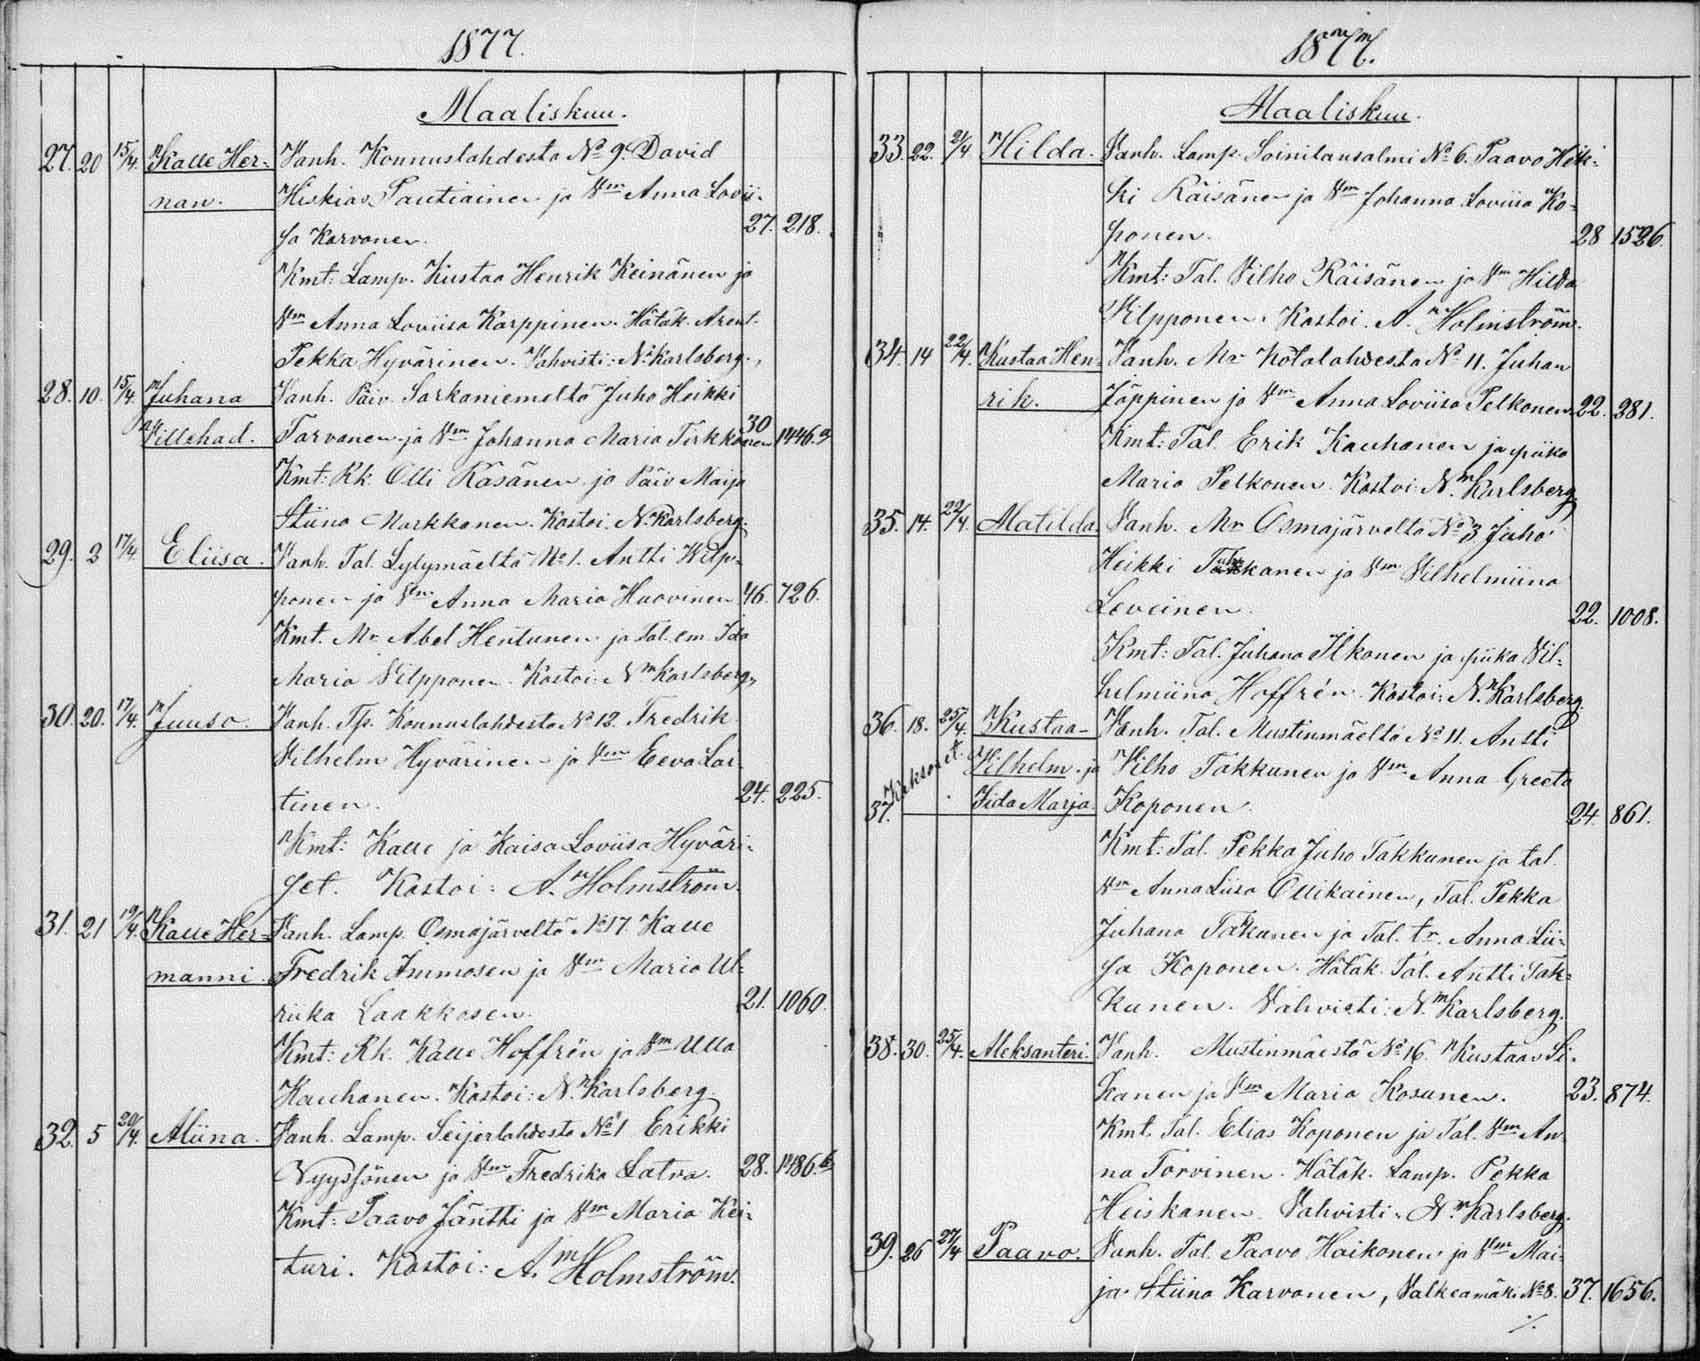 1877.
Maaliskuu.
27. 20 15/4. Kalle Her- Vanh. Konnuslahdesta No 9. David
nan. Hiskias Pautiainen ja Vm Anna Lovii-
sa Karvonen. 27. 218.
Kmt: Lamp. Kustaa Henrik Keinänen ja
Vm Anna Loviisa Karppinen. Hätäk. Arent.
Pekka Hyvärinen. Vahvisti: N. Karlsberg.
28. 10. 15/4. Juhana Vanh. Päiv. Sarkaniemeltä Juho Heikki
Villehad. Tarvanen ja Vm Johanna Maria Tirkkonen 30 1446.
Kmt: Rk. Olli Räsänen ja Päiv Maija
Stiina Markkanen. Kastoi. N. Karlsberg.
29. 3 17/4. Eliisa. Vanh. Tal. Lylymäeltä No 1. Antti Wilp-
ponen ja Vm Anna Maria Huovinen 46. 726.
Kmt. Mr Abel Hentunen ja Tal. em. Ida
Maria Vilpponen. Kastoi: N. Karlsberg.
30. 20. 17/4. Juuso. Vanh. Tp. Konnuslahdesta No 12. Fredrik
Vilhelm Hyvärinen ja Vm Eeva Lar-
tinen. 24. 225.
Kmt: Kalle ja Kaisa Loviisa Hyväri-
set. Kastoi: A. Holmström.
31. 21 19/4. Kalle Her- Vanh. Lamp. Osmajärveltä No 17. Kalle
manni. Fredrik Immosen ja Vm Maria Ul-
riika Laakkosen. 21. 1060.
Kmt: Rk. Kalle Hoffrén ja Vm Ulla
Kauhanen. Kastoi: N. Karlsberg.
32. 5 20/4. Aliina. Vanh. Lamp. Seijerlahdesta No 1 Erikki
Nyyssönen ja Vm Fredrika Latva. 28. 1486.
Kmt: Paavo Jäntti ja Vm Maria Kei-
turi. Kastoi: A. Holmström.
1877.
Maaliskuu.
33. 22. 21/4 Hilda. Vanh. Lamp. Soinilansalmi No 6. Paavo Heik-
ki Räisänen ja Vm Johanna Loviisa Ko-
ponen. 28 1526.
Kmt: Tal. Vilho Räisänen ja Vm Hilda
Vilpponen. Kastoi. A. Holmström.
34. 14 22/4. Kustaa Hen- Vanh. Mr Kotalahdesta No 11. Juhan
rik. Zäppinen ja Vm Anna Loviisa Pelkonen 22. 381.
Kmt: Tal. Erik Kauhanen ja piika
Maria Pelkonen. Kastoi: N. Karlsberg.
35. 14. 22/4. Matilda. Vanh. Mr Osmajärveltä No 3 Juho
Heikki Tuhkanen ja Vm Vilhelmiina
Leveinen. 22. 1008.
Kmt: Tal. Juhana Ilkonen ja piika Vil-
helmiina Hoffrén. Kastoi: N. Karlsberg.
36. 18. 25/4. Kustaa- Vanh. Tal. Mustinmäeltä No 11. Antti
Kaksoset. Vilhelm ja Vilho Takkunen ja Vm Anna Greeta
37. Iida Marja. Koponen. 24. 861.
Kmt: Tal. Pekka Juho Takkunen ja tal.
Vm Anna Liisa Ollikainen, Tal. Pekka
Juhana Takkunen ja Tal. tr. Anna Lii-
sa Koponen. Hätäk. Tal. Antti Tak-
kunen. Vahvisti: N. Karlsberg.
38. 30. 25/4. Aleksanteri. Vanh. Mustinmäestä No 16. Kustaa Si-
kanen ja Vm Maria Kosunen. 23. 874.
Kmt. Tal. Elias Koponen ja Tal. Vm An-
na Torvinen. Hätäk. Lamp. Pekka
Heiskanen. Vahvisti. N. Karlsberg.
39. 26 27/4 Paavo. Vanh. Tal. Paavo Haikonen ja Vm Mai-
ja Stiina Karvonen, Valkeamäki No 8. 37. 1656.